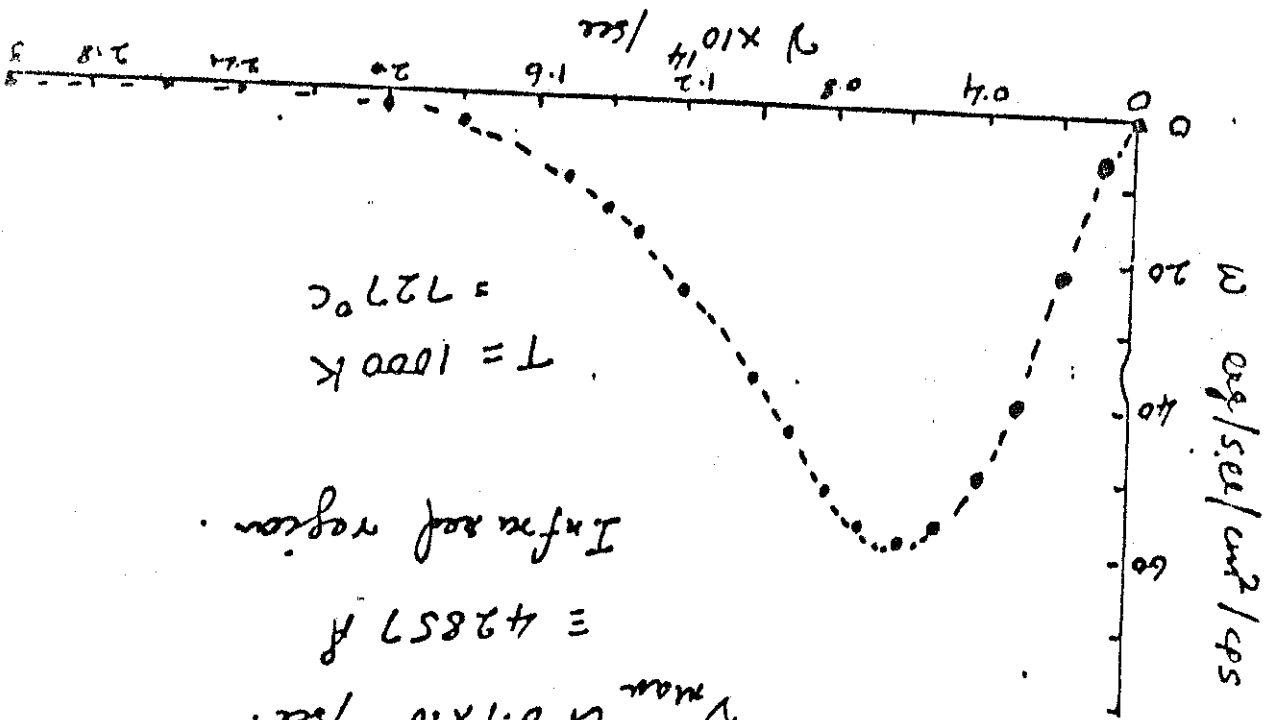 ν_max ≃ 0.7×10 /sec.
≡ 42857 Å
Infrared region.
T = 1000 K
= 727°C
W erg/sec/cm²/cps
60
40
20
0
0 0.4 0.8 1.2 1.6 2.0 2.4 2.8 3
ν ×10¹⁴ /sec